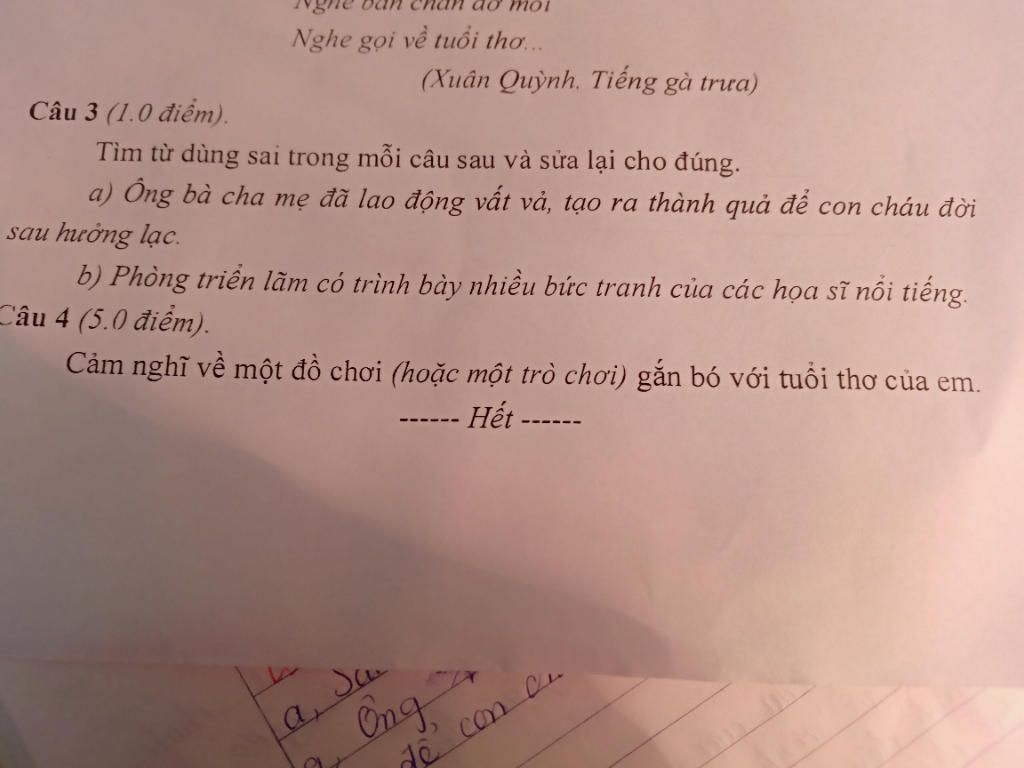 Nghe bàn chân đỡ mỏi
Nghe gọi về tuổi thơ...
(Xuân Quỳnh, Tiếng gà trưa)
Câu 3 (1.0 điểm).
Tìm từ dùng sai trong mỗi câu sau và sửa lại cho đúng.
a) Ông bà cha mẹ đã lao động vất vả, tạo ra thành quả để con cháu đời
sau hưởng lạc.
b) Phòng triển lãm có trình bày nhiều bức tranh của các họa sĩ nổi tiếng.
Câu 4 (5.0 điểm).
Cảm nghĩ về một đồ chơi (hoặc một trò chơi) gắn bó với tuổi thơ của em.
------ Hết ------
a,
Ông,
để con